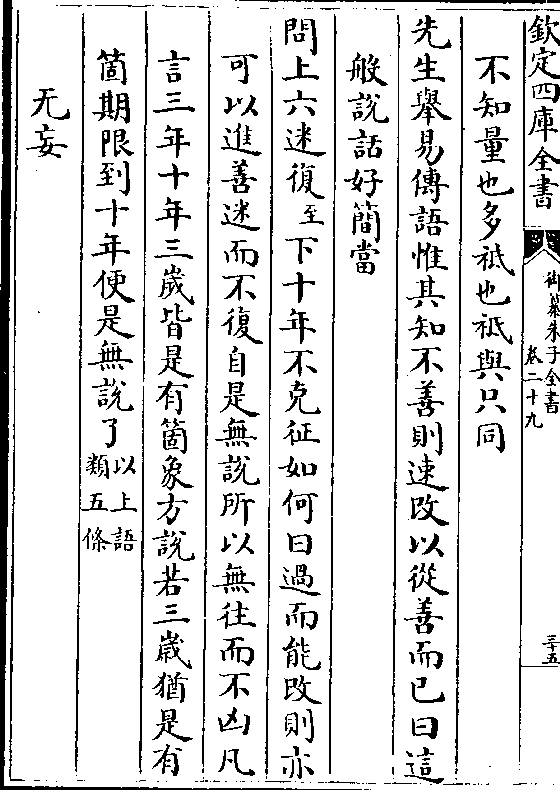 欽定四庫全書
御纂朱子全書
卷二十九
三十五
不知量也多祗也祗與只同
先生舉易傳語惟其知不善則速改以從善而已曰這
般說話好簡當
問上六迷復至下十年不克征如何曰過而能改則亦
可以進善迷而不復自是無說所以無往而不凶凡
言三年十年三歲皆是有箇象方說若三歲猶是有
箇期限到十年便是無說了以上語類五條
无妄